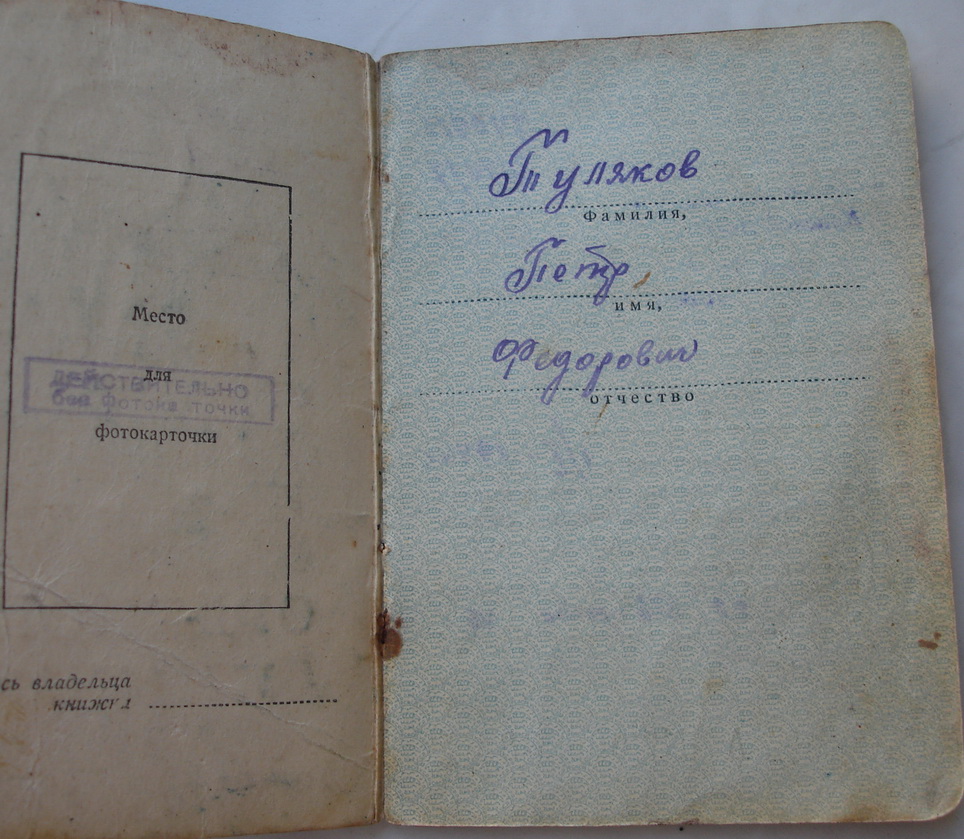 Место
для
фотокарточки
ДЕЙСТВИТЕЛЬНО
без фотокарточки
сь владельца
книжки
Туляков
Фамилия,
Петр
имя,
Федорович
отчество